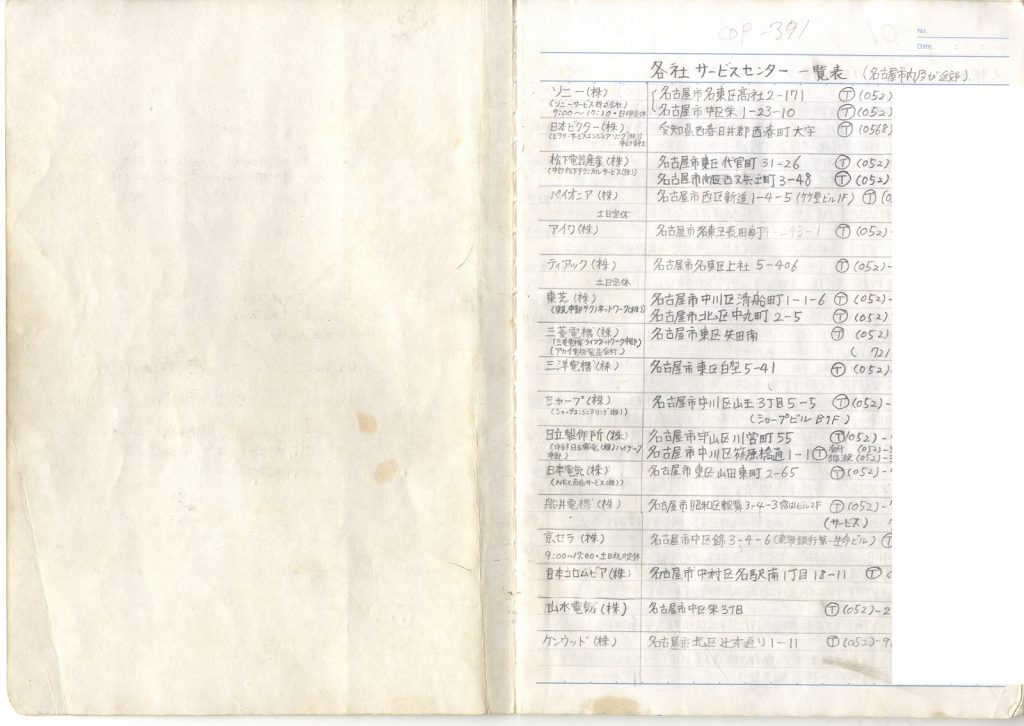 CDP-391
No.
Date
各社 サービスセンター 一覧表 (名古屋市内及び近郊)
ソニー(株) 名古屋市名東区高社2-171 Ⓣ(052)
(ソニーサービス株式会社)
9:00〜17:30・日曜定休 名古屋市中区栄1-23-10 Ⓣ(052)
日本ビクター(株) 愛知県西春日井郡西春町大字 Ⓣ(0568)
(ビクターサービスエンジニアリング(株))
松下電器産業(株) 名古屋市東区代官町31-26 Ⓣ(052)
(中部松下テクニカルサービス(株)) 名古屋市南区西又兵ヱ町3-48 Ⓣ(052)
パイオニア(株) 名古屋市西区新道1-4-5 Ⓣ(0
土日定休
アイワ(株) 名古屋市名東区長田町 -243-1 Ⓣ(052)-
ティアック(株) 名古屋市名東区上社5-406 Ⓣ(052)-
土日定休
東芝(株) 名古屋市中川区清船町1-1-6 Ⓣ(052)-
(東芝中部テクノネットワーク(株)) 名古屋市北区中丸町2-5 Ⓣ(052)-
三菱電機(株) 名古屋市東区矢田南 Ⓣ(052)
(三菱電機ライフネットワーク中部)
(アカイ電機製品受付) ( 721
三洋電機(株) 名古屋市東区白壁5-41 Ⓣ(052)-
シャープ(株) 名古屋市中川区山王3丁目5-5 Ⓣ(052)-
(シャープエンジニアリング(株)) (シャープビルB1F)
日立製作所(株) 名古屋市中川区川宮町55 Ⓣ(052)-
(中部日立家電(株)ハイテック
中部) 名古屋市中川区篠原橋通1-1 Ⓣ (052)-
(052)-
日本電気(株) 名古屋市東区山田東町2-65 Ⓣ(052)-
(NEC商品サービス(株))
船井電機(株) 名古屋市昭和区鶴舞3-4-3 Ⓣ(052)-
(サービス)
京セラ(株) 名古屋市中区錦3-4-6(東海銀行第一生命ビル) Ⓣ
9:00〜17:00・土日祝日定休
日本コロムビア(株) 名古屋市中村区名駅南1丁目18-11 Ⓣ(
山水電気(株) 名古屋市中区栄3丁目 Ⓣ(052)-2
ケンウッド(株) 名古屋市北区辻本通り1-11 Ⓣ(052)-9